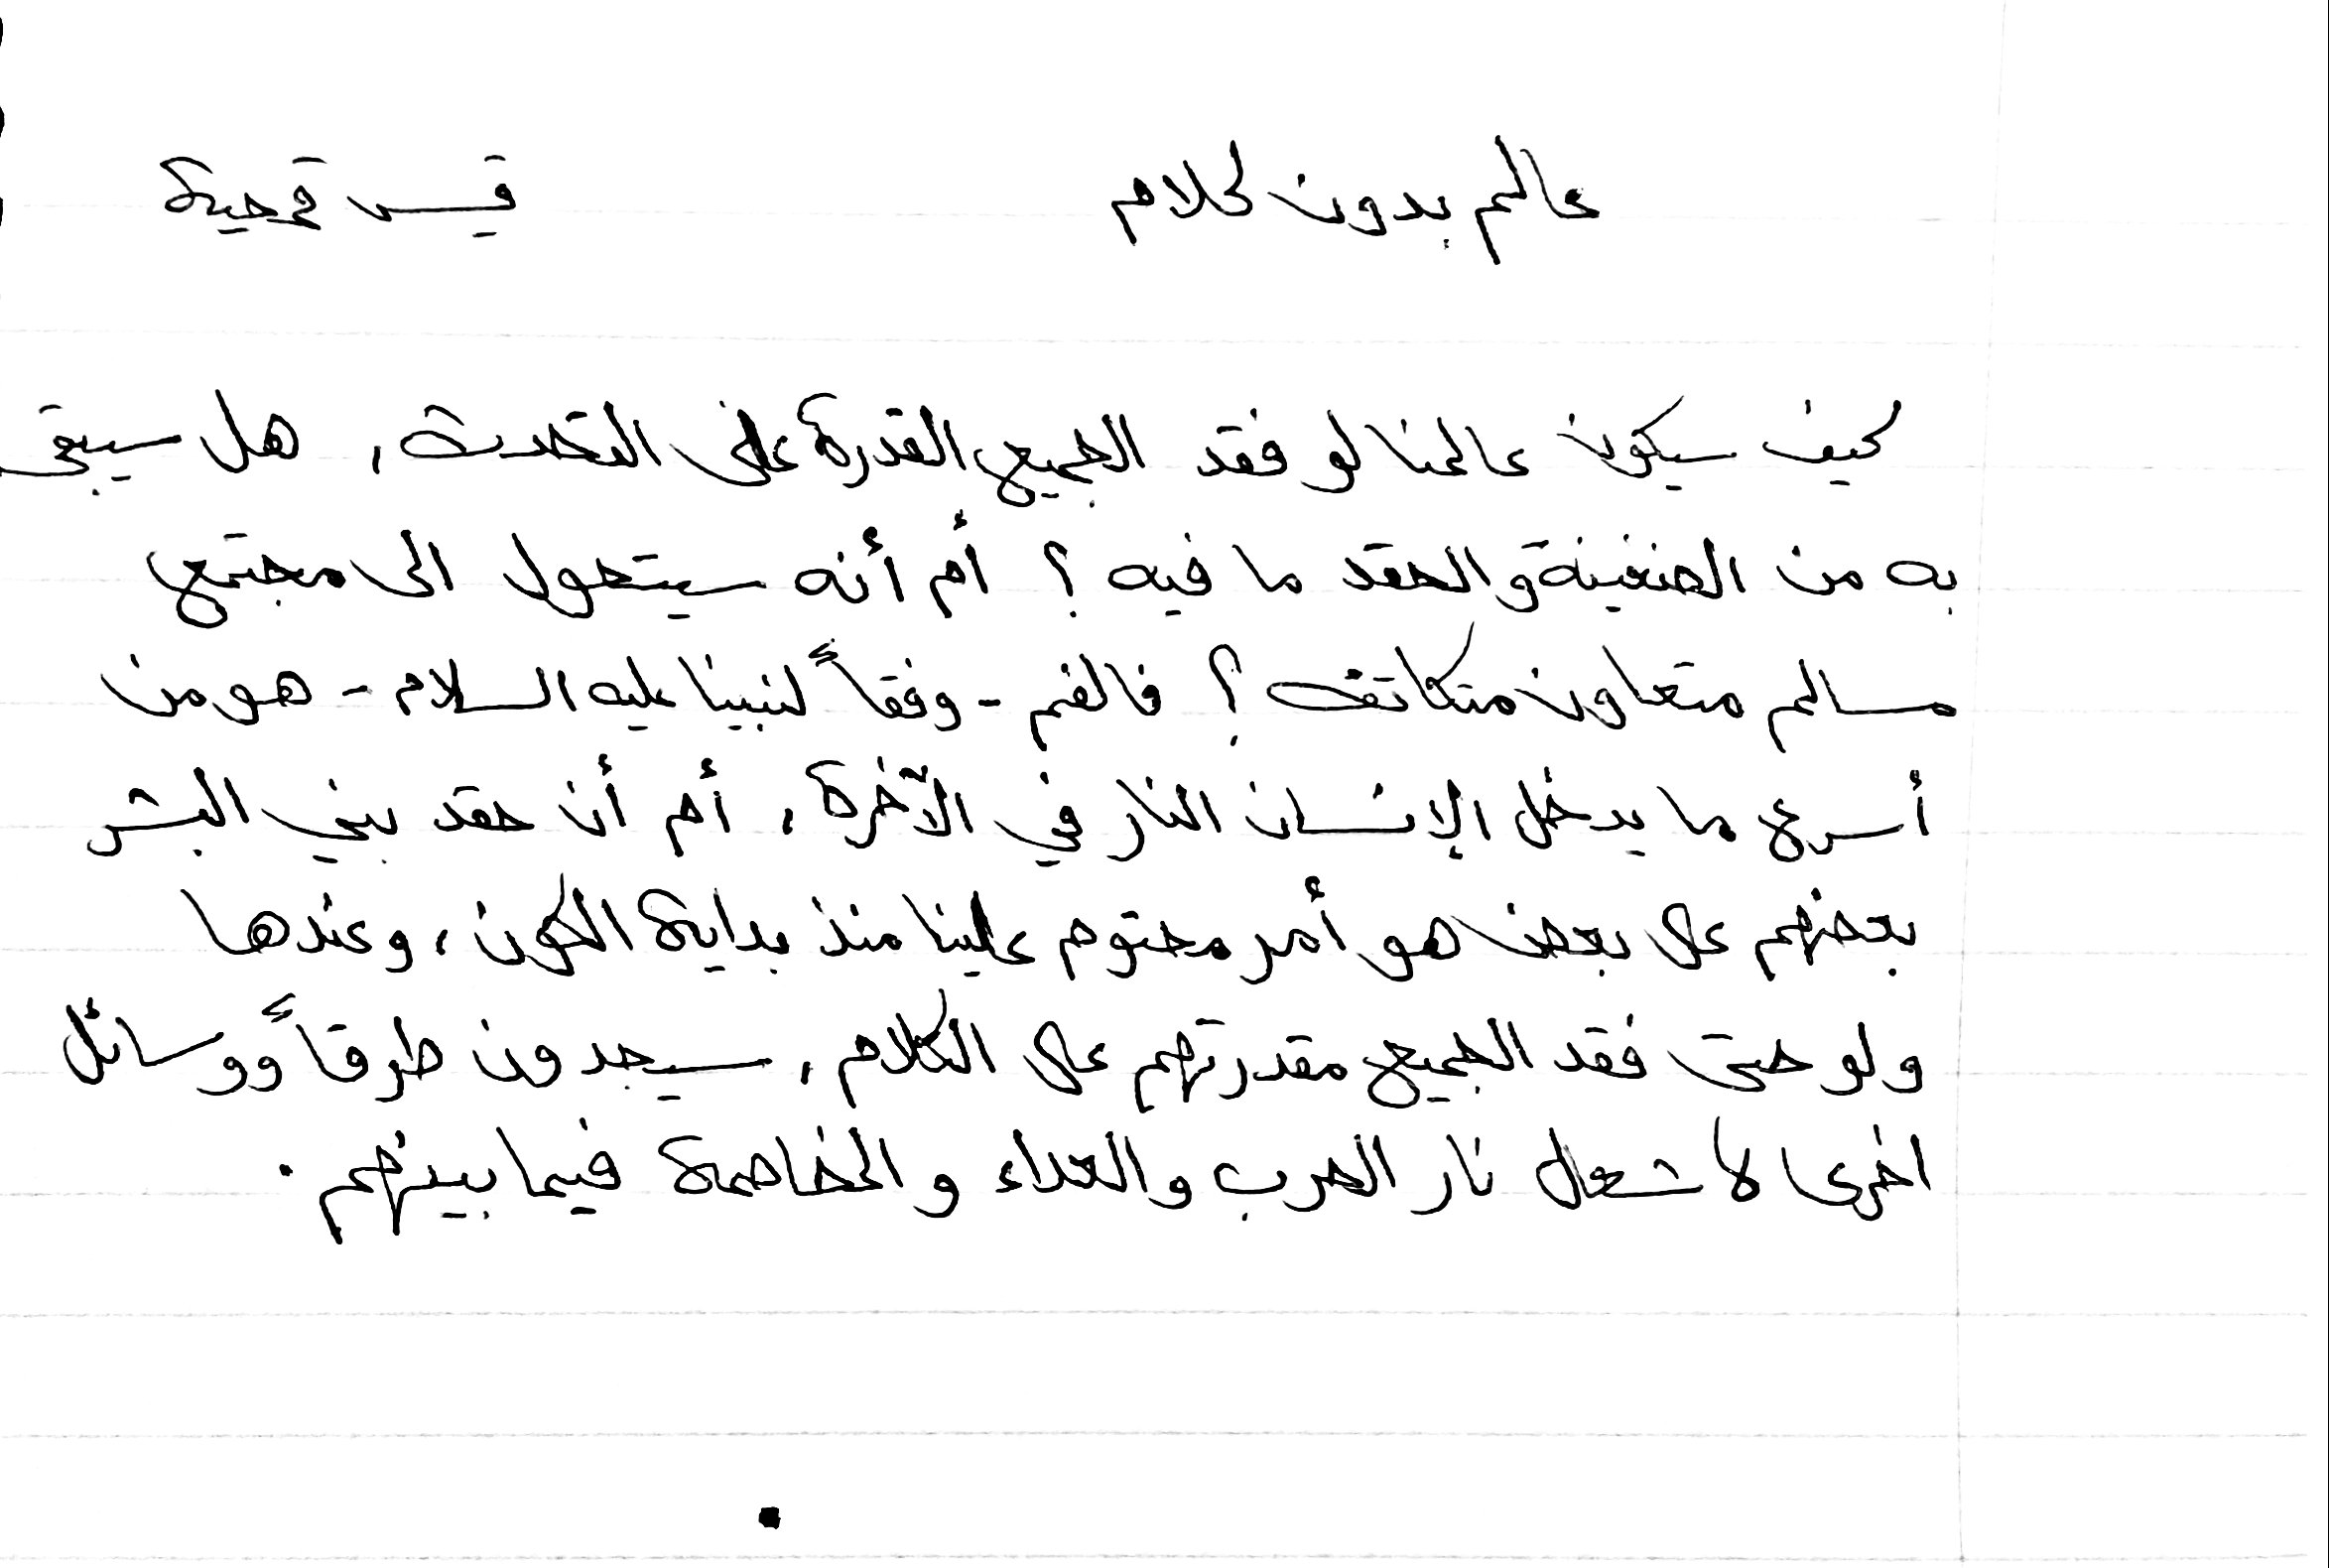 عالم بدون كلام قيس قمحية
كيف سيكون عالمنا لو فقد الجميع القدرة على التحدث، هل سيبقى
به من الضغينة والحقد ما فيه؟ أم أنه سيتحول الى مجتمع
مسالم متعاون متكاتف؟ فالفم - وفقاً لنبينا عليه السلام - هو من
أسرع ما يدخل الإنسان النار في الآخرة، أم أن حقد بني البشر
بعضهم على بعض هو أمر محتوم علينا منذ بداية الكون، وعندها
ولو حتى فقد الجميع مقدرتهم على الكلام، سيجدون طرقاً ووسائل
اخرى لاشعال نار الحرب والعداء والمخاصمة فيما بينهم.